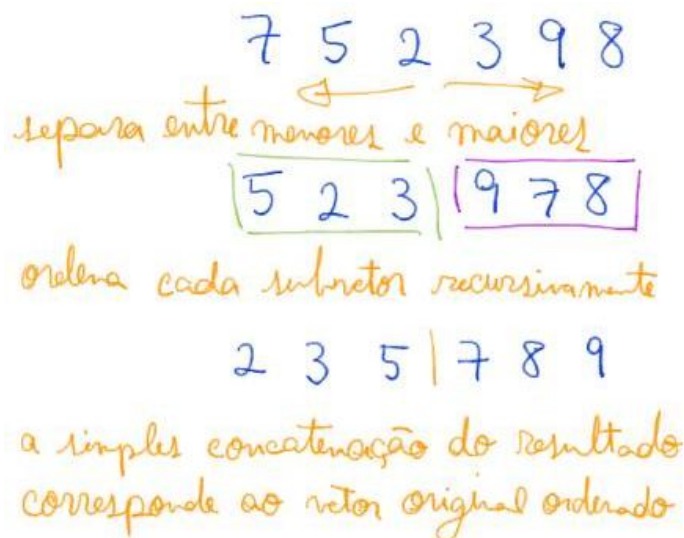 7 5 2 3 9 8
separa entre menores e maiores
5 2 3 9 7 8
ordena cada subvetor recursivamente
2 3 5 | 7 8 9
a simples concatenação do resultado
corresponde ao vetor original ordenado